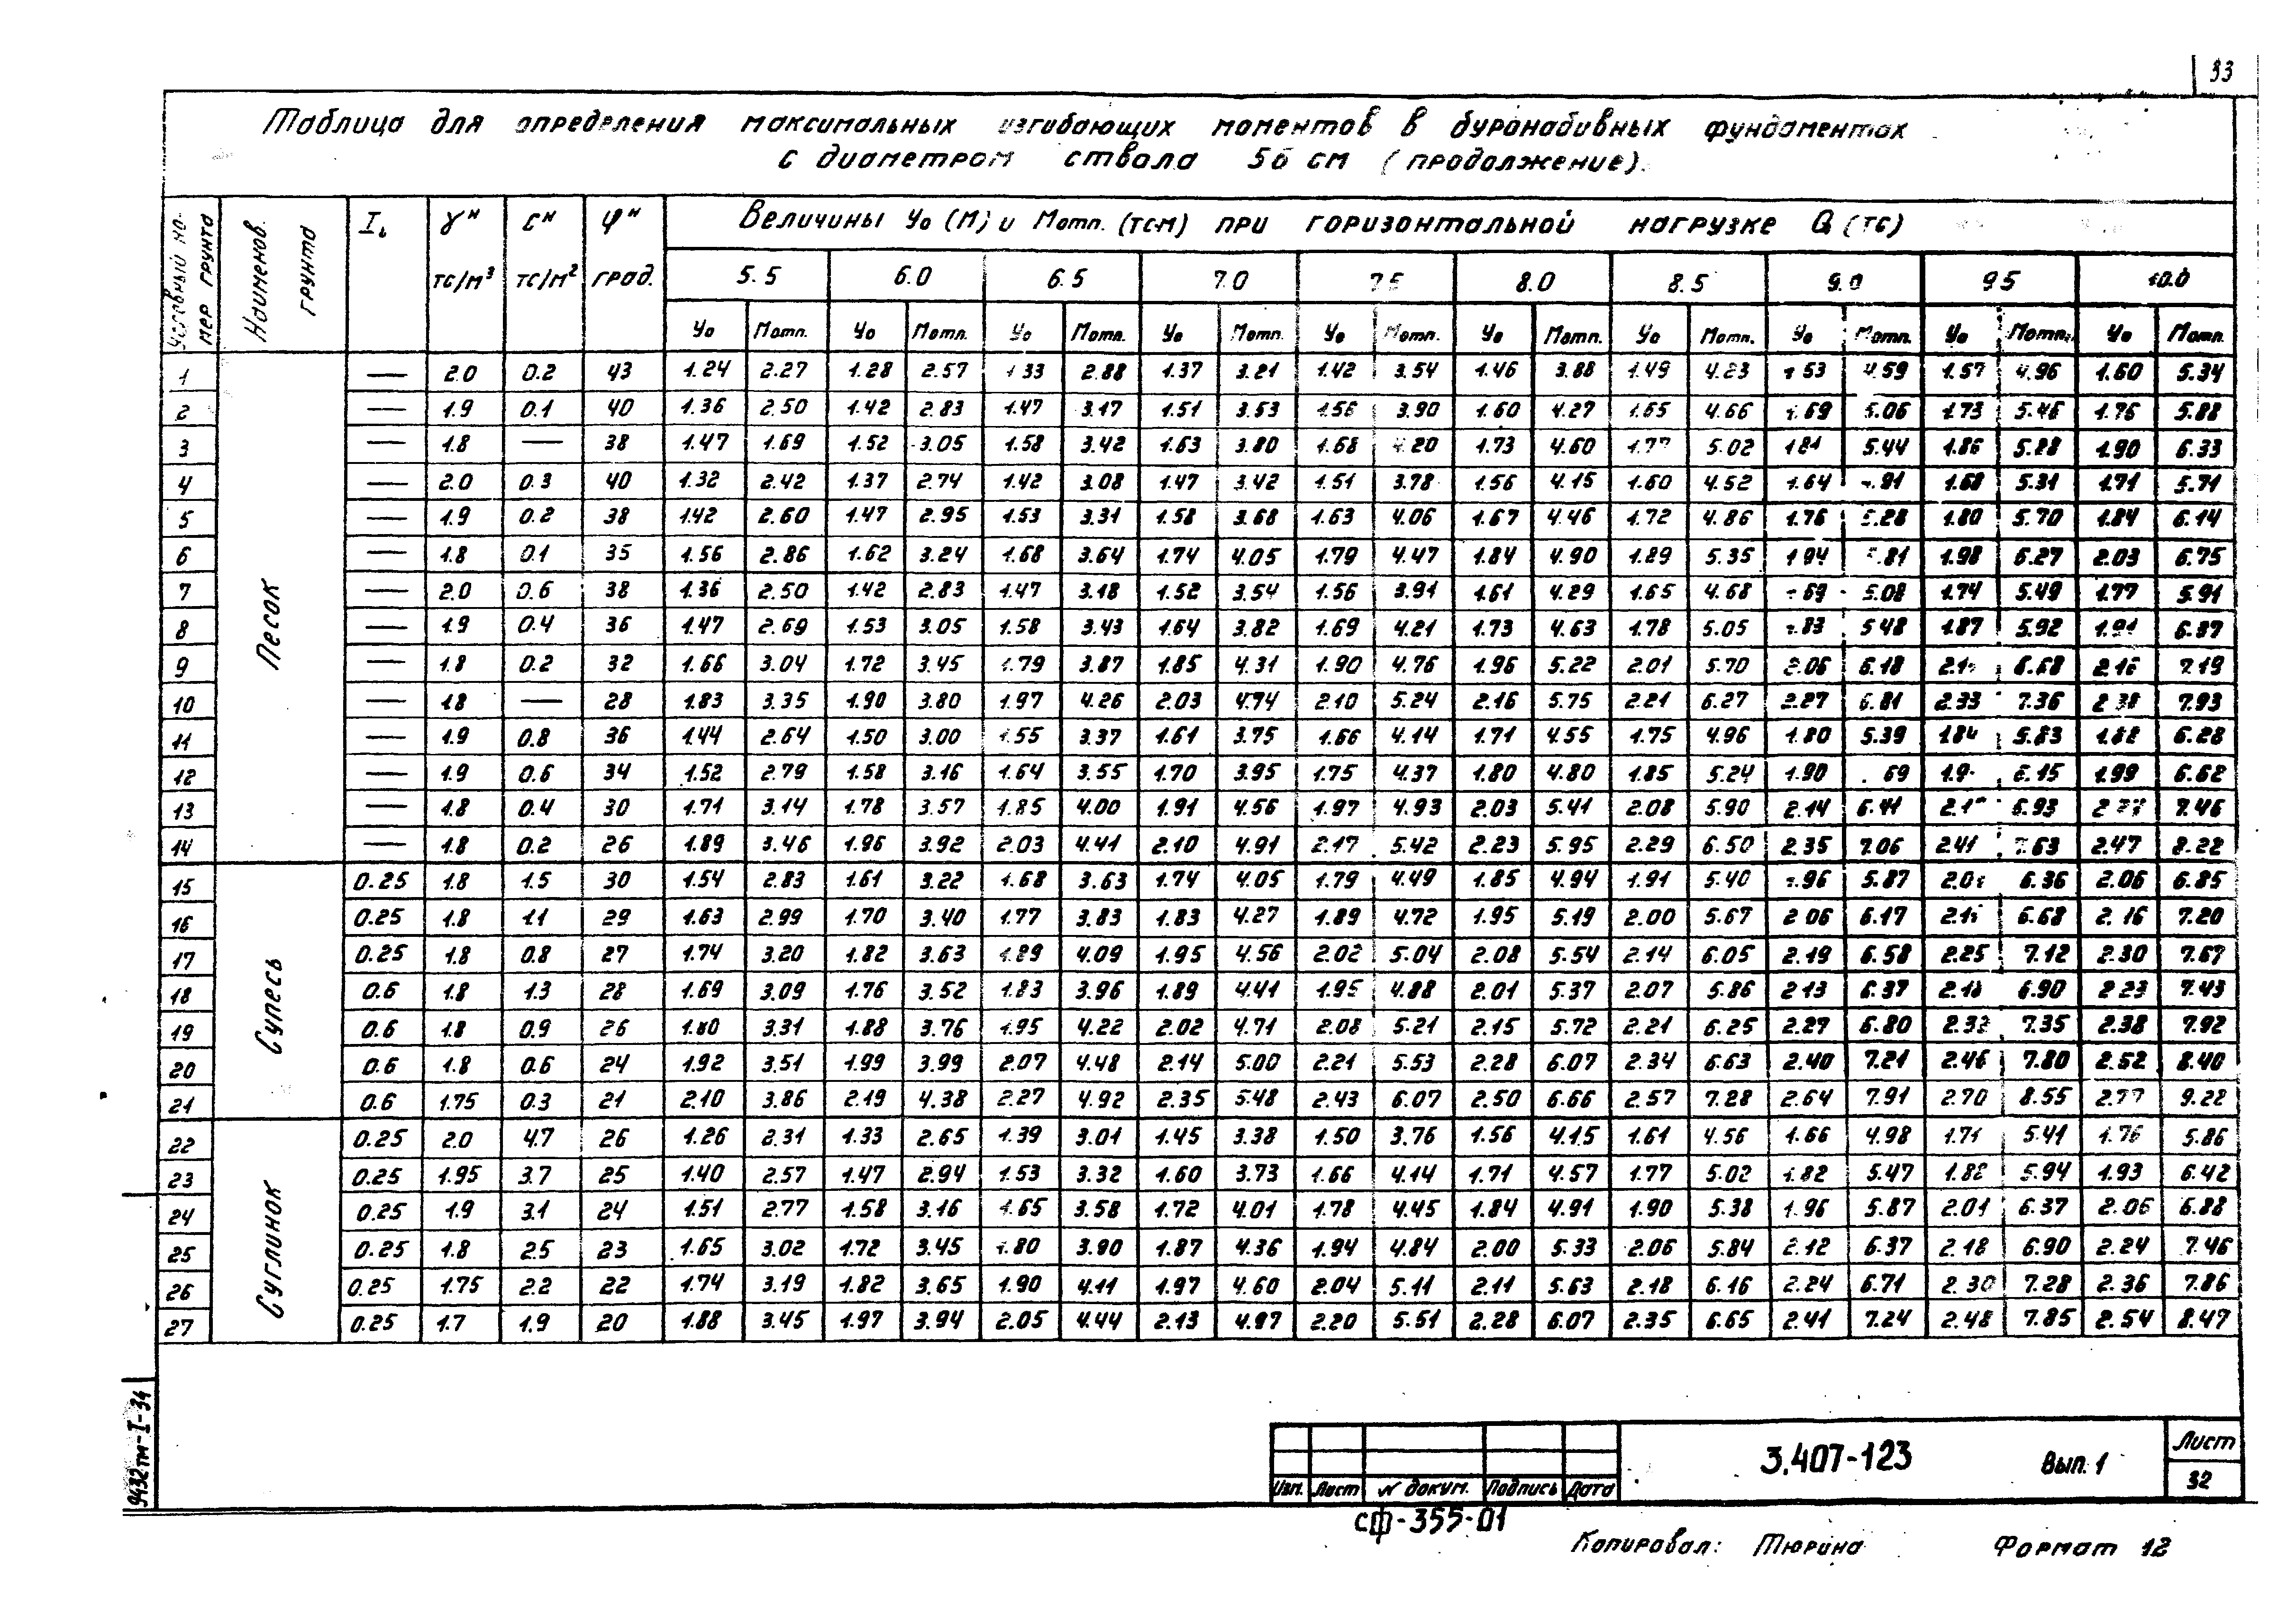 33
Таблица для определения максимальных изгибающих моментов в буронабивных фундаментах
с диаметром ствола 56 см (продолжение).
Условный номер грунта
Наименов. грунта
I_L γᴴ Cᴴ φᴴ Величины У₀ (М) и Мотп. (тс·м) при горизонтальной нагрузке Q (тс)
тс/м³ тс/м² град.
5.5 6.0 6.5 7.0 7.5 8.0 8.5 9.0 9.5 10.0
У₀ Мотп. У₀ Мотп. У₀ Мотп. У₀ Мотп. У₀ Мотп. У₀ Мотп. У₀ Мотп. У₀ Мотп. У₀ Мотп. У₀ Мотп.
Песок
1 — 2.0 0.2 43 1.24 2.27 1.28 2.57 1.33 2.88 1.37 3.21 1.42 3.54 1.46 3.88 1.49 4.23 1.53 4.59 1.57 4.96 1.60 5.34
2 — 1.9 0.1 40 1.36 2.50 1.42 2.83 1.47 3.17 1.51 3.53 1.56 3.90 1.60 4.27 1.65 4.66 1.69 5.06 1.73 5.46 1.76 5.88
3 — 1.8 — 38 1.47 1.69 1.52 3.05 1.58 3.42 1.63 3.80 1.68 4.20 1.73 4.60 1.77 5.02 1.81 5.44 1.86 5.88 1.90 6.33
4 — 2.0 0.3 40 1.32 2.42 1.37 2.74 1.42 3.08 1.47 3.42 1.51 3.78 1.56 4.15 1.60 4.52 1.64 4.91 1.68 5.31 1.71 5.71
5 — 1.9 0.2 38 1.42 2.60 1.47 2.95 1.53 3.31 1.58 3.68 1.63 4.06 1.67 4.46 1.72 4.86 1.76 5.28 1.80 5.70 1.84 6.14
6 — 1.8 0.1 35 1.56 2.86 1.62 3.24 1.68 3.64 1.74 4.05 1.79 4.47 1.84 4.90 1.89 5.35 1.94 5.81 1.98 6.27 2.03 6.75
7 — 2.0 0.6 38 1.36 2.50 1.42 2.83 1.47 3.18 1.52 3.54 1.56 3.91 1.61 4.29 1.65 4.68 1.69 5.08 1.74 5.49 1.77 5.91
8 — 1.9 0.4 36 1.47 2.69 1.53 3.05 1.58 3.43 1.64 3.82 1.69 4.21 1.73 4.63 1.78 5.05 1.83 5.48 1.87 5.92 1.91 6.37
9 — 1.8 0.2 32 1.66 3.04 1.72 3.45 1.79 3.87 1.85 4.31 1.90 4.76 1.96 5.22 2.01 5.70 2.06 6.18 6.68 2.16 7.19
10 — 1.8 — 28 1.83 3.35 1.90 3.80 1.97 4.26 2.03 4.74 2.10 5.24 2.16 5.75 2.21 6.27 2.27 6.81 2.33 7.36 2.38 7.93
11 — 1.9 0.8 36 1.44 2.64 1.50 3.00 1.55 3.37 1.61 3.75 1.66 4.14 1.71 4.55 1.75 4.96 1.80 5.39 1.84 5.83 1.88 6.28
12 — 1.9 0.6 34 1.52 2.79 1.58 3.16 1.64 3.55 1.70 3.95 1.75 4.37 1.80 4.80 1.85 5.24 1.90 6.15 1.99 6.62
13 — 1.8 0.4 30 1.71 3.14 1.78 3.57 1.85 4.00 1.91 4.56 1.97 4.93 2.03 5.41 2.08 5.90 2.14 6.41 6.93 7.46
14 — 1.8 0.2 26 1.89 3.46 1.96 3.92 2.03 4.41 2.10 4.91 2.17 5.42 2.23 5.95 2.29 6.50 2.35 7.06 2.41 7.63 2.47 8.22
Супесь
15 0.25 1.8 1.5 30 1.54 2.83 1.61 3.22 1.68 3.63 1.74 4.05 1.79 4.49 1.85 4.94 1.91 5.40 1.96 5.87 6.36 2.06 6.85
16 0.25 1.8 1.1 29 1.63 2.99 1.70 3.40 1.77 3.83 1.83 4.27 1.89 4.72 1.95 5.19 2.00 5.67 2.06 6.17 6.68 2.16 7.20
17 0.25 1.8 0.8 27 1.74 3.20 1.82 3.63 1.89 4.09 1.95 4.56 2.02 5.04 2.08 5.54 2.14 6.05 2.19 6.58 2.25 7.12 2.30 7.67
18 0.6 1.8 1.3 28 1.69 3.09 1.76 3.52 1.83 3.96 1.89 4.41 1.95 4.88 2.01 5.37 2.07 5.86 2.13 6.37 2.18 6.90 2.23 7.43
19 0.6 1.8 0.9 26 1.80 3.31 1.88 3.76 1.95 4.22 2.02 4.71 2.08 5.21 2.15 5.72 2.21 6.25 2.27 6.80 2.32 7.35 2.38 7.92
20 0.6 1.8 0.6 24 1.92 3.51 1.99 3.99 2.07 4.48 2.14 5.00 2.21 5.53 2.28 6.07 2.34 6.63 2.40 7.21 2.46 7.80 2.52 8.40
21 0.6 1.75 0.3 21 2.10 3.86 2.19 4.38 2.27 4.92 2.35 5.48 2.43 6.07 2.50 6.66 2.57 7.28 2.64 7.91 2.70 8.55 2.77 9.22
Суглинок
22 0.25 2.0 4.7 26 1.26 2.31 1.33 2.65 1.39 3.01 1.45 3.38 1.50 3.76 1.56 4.15 1.61 4.56 1.66 4.98 1.71 5.41 1.76 5.86
23 0.25 1.95 3.7 25 1.40 2.57 1.47 2.94 1.53 3.32 1.60 3.73 1.66 4.14 1.71 4.57 1.77 5.02 1.82 5.47 1.82 5.94 1.93 6.42
24 0.25 1.9 3.1 24 1.51 2.77 1.58 3.16 1.65 3.58 1.72 4.01 1.78 4.45 1.84 4.91 1.90 5.38 1.96 5.87 2.01 6.37 2.06 6.88
25 0.25 1.8 2.5 23 1.65 3.02 1.72 3.45 1.80 3.90 1.87 4.36 1.94 4.84 2.00 5.33 2.06 5.84 2.12 6.37 2.18 6.90 2.24 7.46
26 0.25 1.75 2.2 22 1.74 3.19 1.82 3.65 1.90 4.11 1.97 4.60 2.04 5.11 2.11 5.63 2.18 6.16 2.24 6.71 2.30 7.28 2.36 7.86
27 0.25 1.7 1.9 20 1.88 3.45 1.97 3.94 2.05 4.44 2.13 4.97 2.20 5.51 2.28 6.07 2.35 6.65 2.41 7.24 2.48 7.85 2.54 8.47
9432тм-I-34
Изм. Лист № докум. Подпись Дата
3.407-123 Вып. 1
Лист
32
сф-355-01
Копировал: Тюрина Формат 12